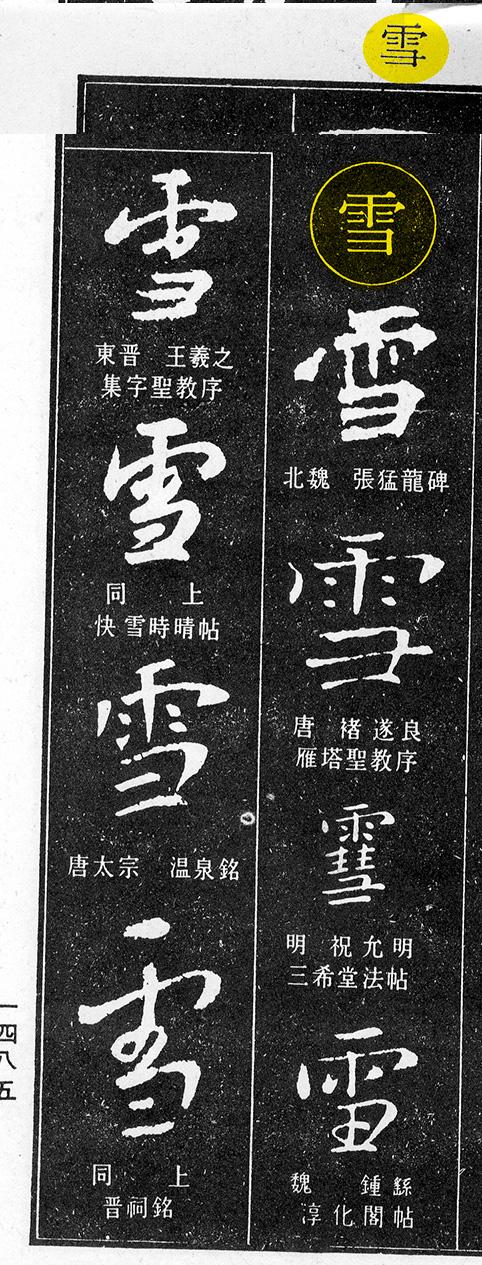 雪
雪
雪
北魏　張猛龍碑
雪
唐　褚遂良
雁塔聖教序
雪
明　祝允明
三希堂法帖
雪
魏　鍾繇
淳化閣帖
雪
東晋　王羲之
集字聖教序
雪
同　上
快雪時晴帖
雪
唐太宗　温泉銘
雪
同　上
晋祠銘
一四八五